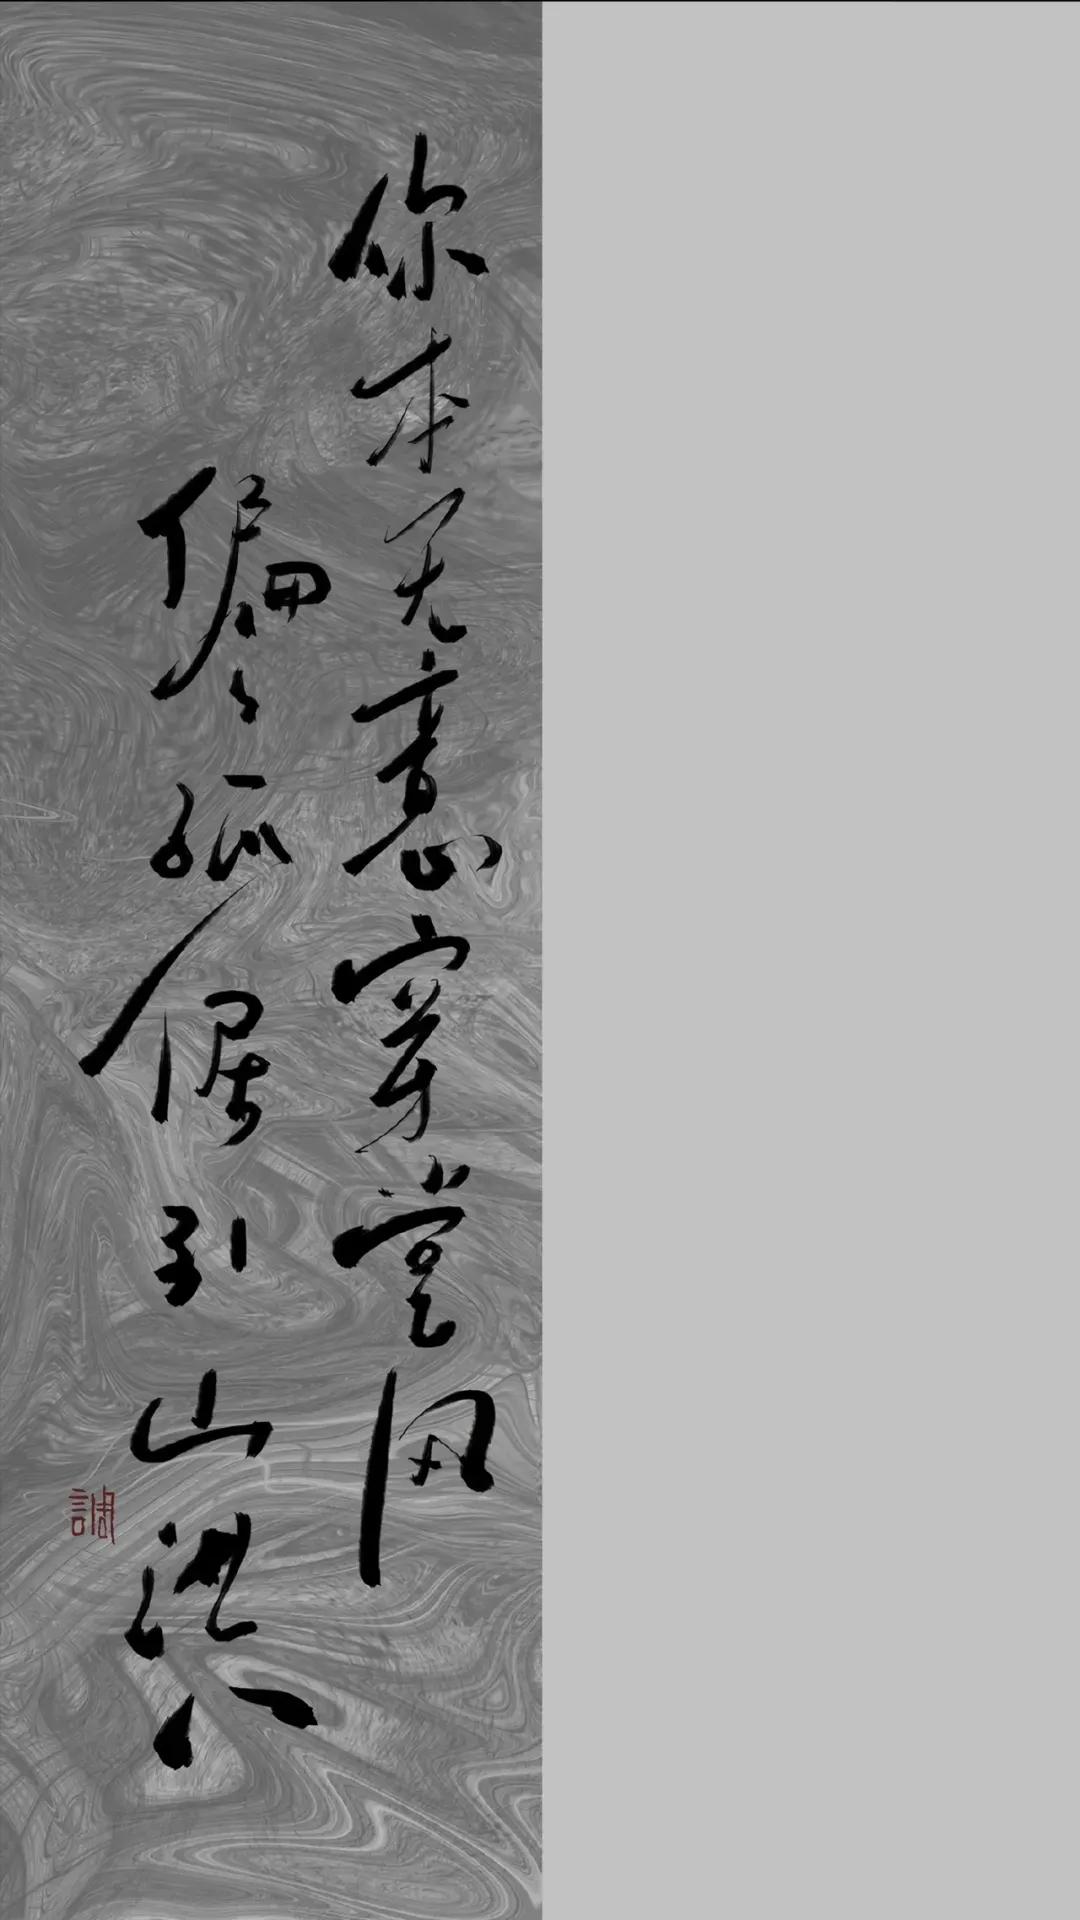 你本无意穿堂风
偏々孤倨引山洪
調